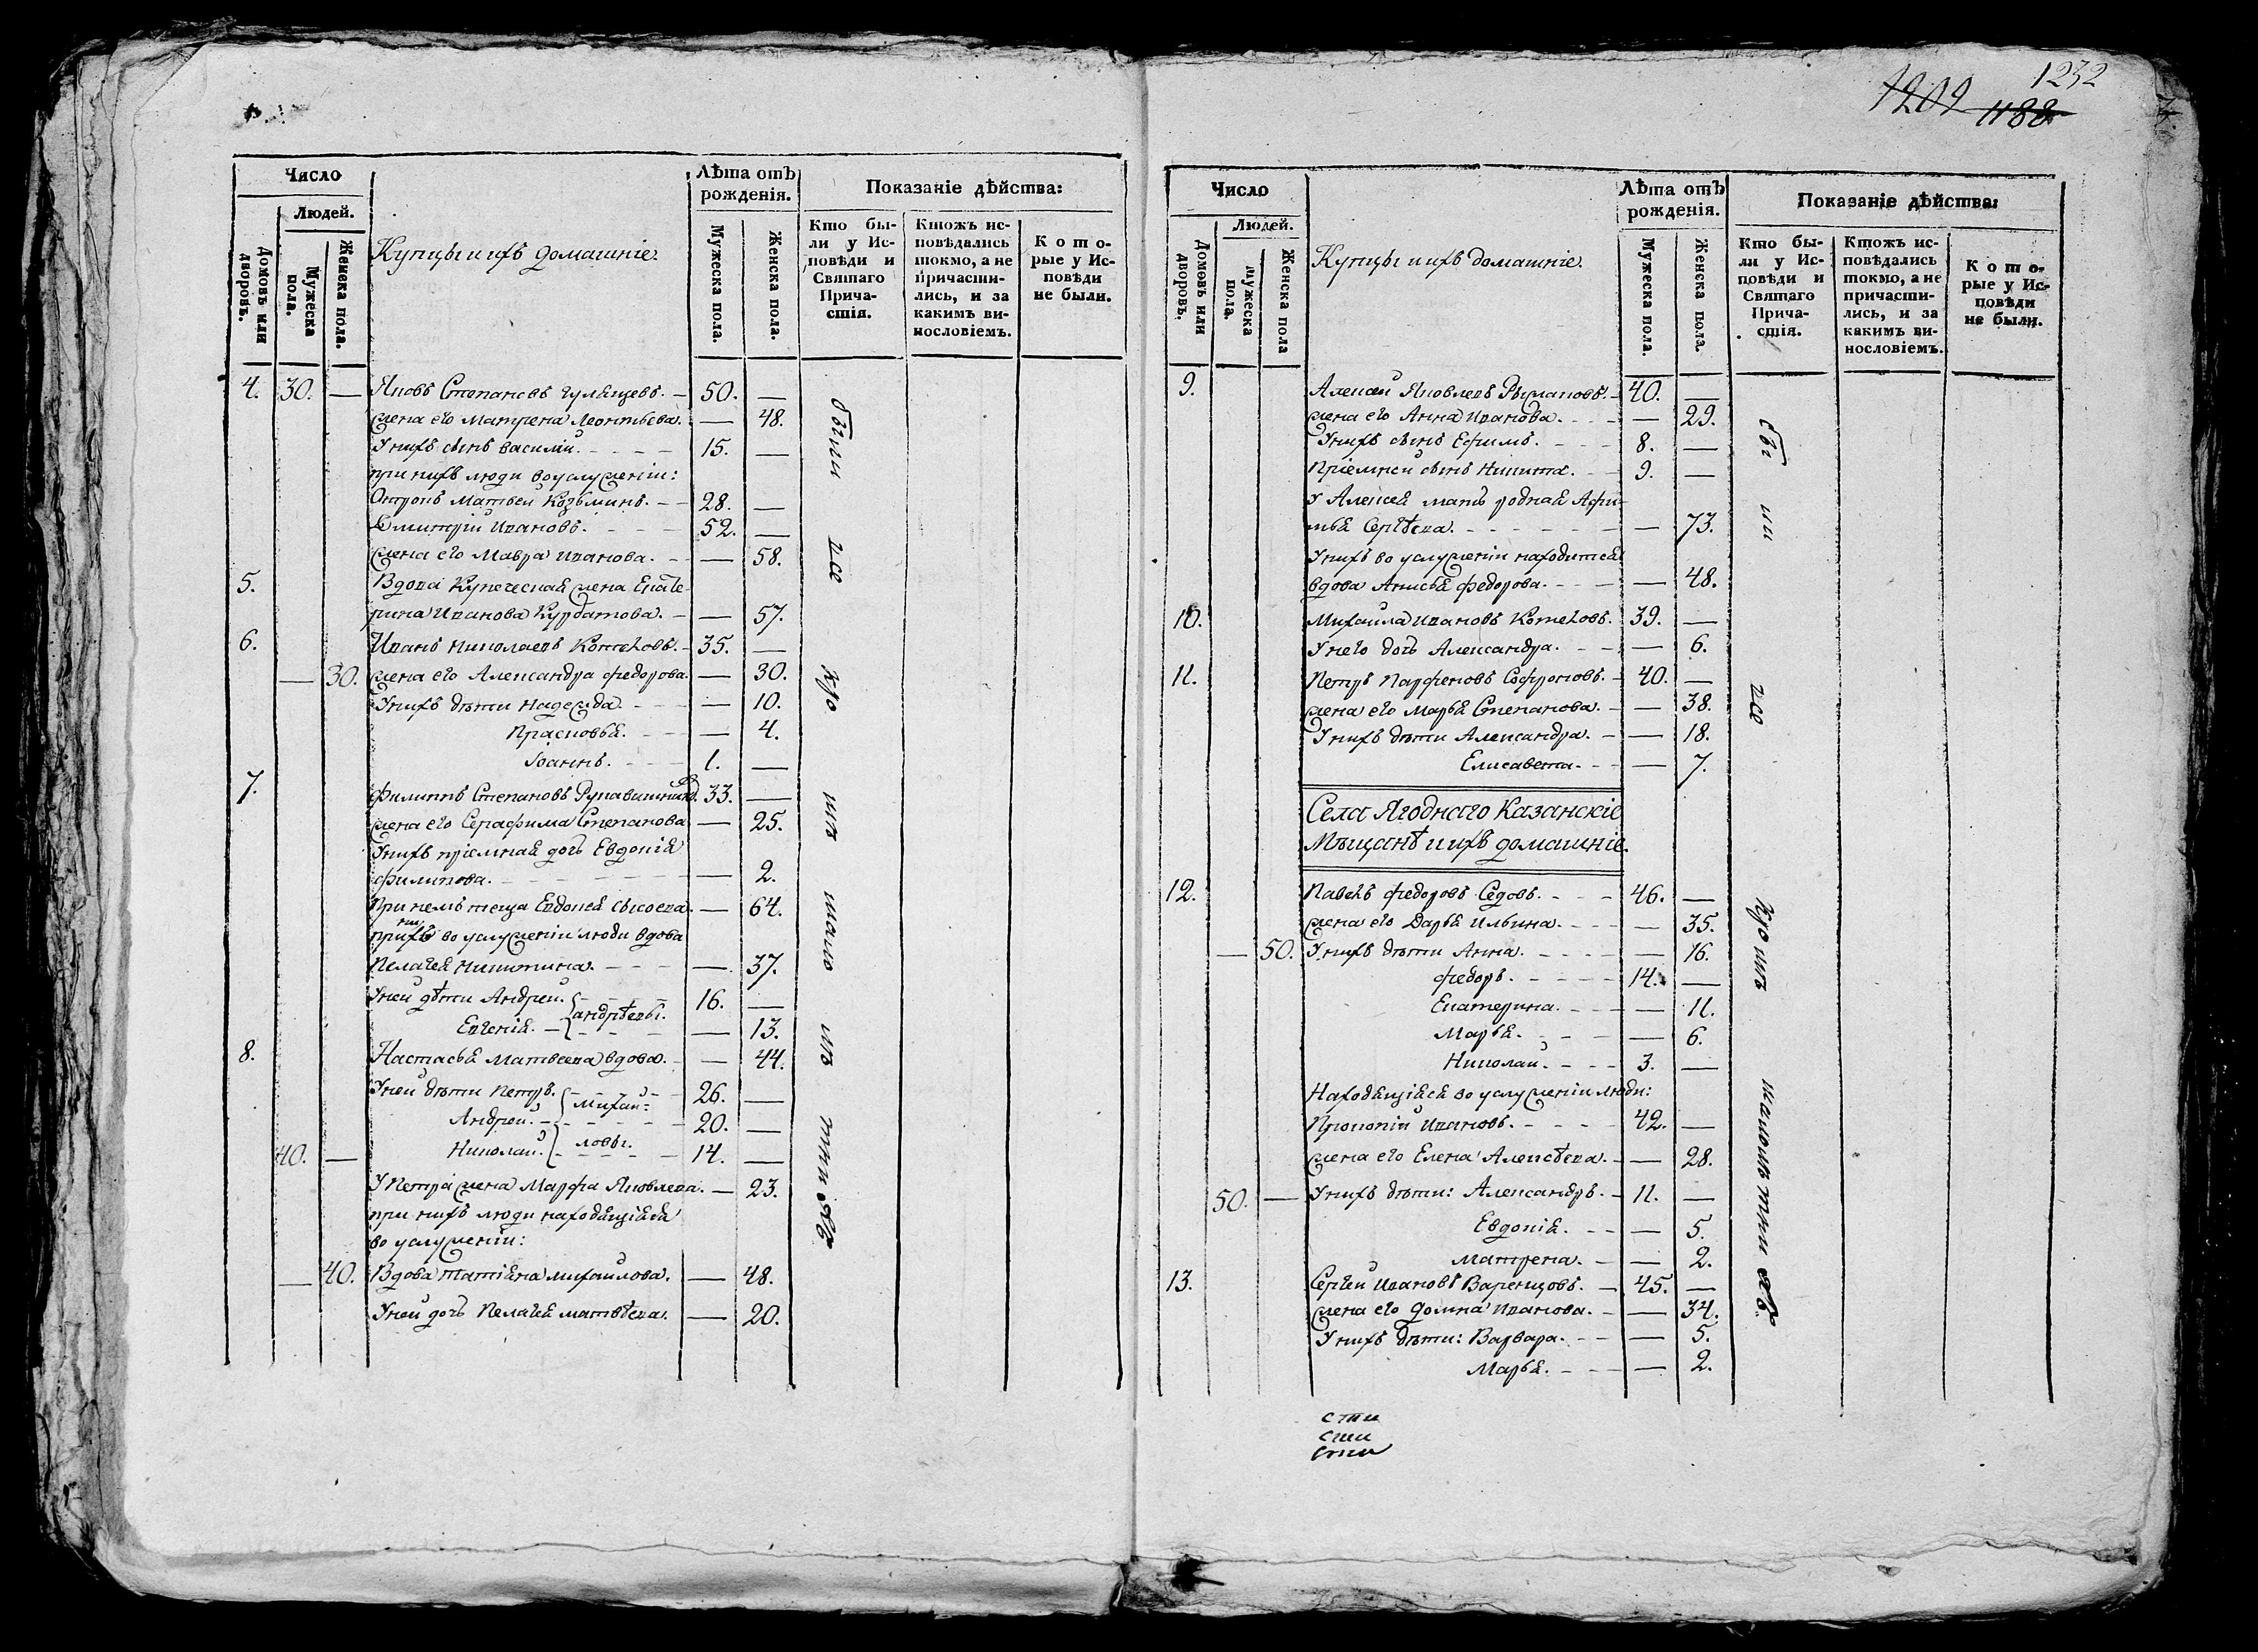 1232
1209 1188
Число
Людей.
Домовъ или дворовъ.
Мужеска пола.
Женска пола.
Купцы и ихъ домашніе.
Лѣта отъ рожденія.
Мужеска пола.
Женска пола.
Показаніе дѣйства:
Кто бы-
ли у Ис-
повѣди и
Святаго
Прича-
стія.
Ктожъ ис-
повѣдались
токмо, а не
причасти-
лись, и за
какимъ ви-
нословіемъ.
Кото-
рые у Ис-
повѣди
не были.
4. 30. — Яковъ Степановъ — 50. —
жена его Матрена Леонтьева. — 48.
У нихъ сынъ Василий. 15. —
при нихъ люди во услуженіи:
Матвей Козьминъ. 28. —
Дмитрій Ивановъ. 52. —
жена его Мавра Иванова. — 58.
5. Вдова Купеческая жена Екате
рина Иванова Курбатова. — 57.
6. Иванъ Николаевъ Котеловъ. 35. —
— 30. жена его Александра Федорова. — 30.
У нихъ дѣти Надежда — 10.
Прасковья. — 4.
Іоаннъ. 1. —
7. Филиппъ Степановъ Рукавишников. 33. —
жена его Серафима Степанова — 25.
У нихъ пріемная дочь Евдокія
Филипова. — 2.
При немъ теща Евдокея Сысоева. — 64.
при нихъ во услуженіи люди вдова
Пелагея Никитина. — 37.
У ней дѣти Андрей. 16. —
Андрѣевы.
Евгенія. — 13.
8. Настасья Матвеева вдова. — 44.
У ней дѣти Петръ. 26. —
Михай-
Андрей. 20. —
ловы.
40. — Николай. 14. —
У Петра жена Марфа Яковлева. — 23.
при нихъ люди находящіяся
во услуженіи:
— 40. Вдова Татіяна Михайлова. — 48.
У ней дочь Пелагея Матвѣева. — 20.
были
Число
Людей.
Домовъ или дворовъ.
Мужеска пола.
Женска пола
Купцы и ихъ домашніе.
Лѣта отъ рожденія.
Мужеска пола.
Женска пола.
Показаніе дѣйства:
Кто бы-
ли у Ис-
повѣди и
Святаго
Прича-
стія.
Ктожъ ис-
повѣдались
токмо, а не
причасти-
лись, и за
какимъ ви-
нословіемъ.
Кото-
рые у Ис-
повѣди
не были.
9. Алексей Яковлевъ 40. —
жена его Анна Иванова. — 29.
У нихъ сынъ Ефимъ. 8. —
Пріемной сынъ Никита. 9. —
У Алексея мать родная Афи-
мья Сергѣева. — 73.
У нихъ во услуженіи находится
вдова Анисья Федорова. — 48.
10. Михайла Ивановъ Котеловъ. 39. —
У него дочь Александра. — 6.
11. Петръ Парфеновъ Софроновъ. 40. —
жена его Марья Степанова. — 38.
У нихъ дѣти Александра. — 18.
Елисавета. — 7.
Села Ягоднаго Казанскіе
Мѣщанѣ и ихъ домашніе.
12. Павелъ Федоровъ Седовъ. 46. —
жена его Дарья Ильина. — 35.
— 50. У нихъ дѣти Анна. — 16.
Федоръ. 14. —
Екатерина. — 11.
Марья. — 6.
Николай. 3. —
Находящіяся во услуженіи люди:
Прокопій Ивановъ. 42. —
жена его Елена Алексѣева. — 28.
50. — У нихъ дѣти: Александръ. 11. —
Евдокія. — 5.
Матрена. — 2.
13. Сергей Ивановъ Варенцовъ. 45. —
жена его Домна Иванова. — 34.
У нихъ дѣти: Варвара. — 5.
Марья. — 2.